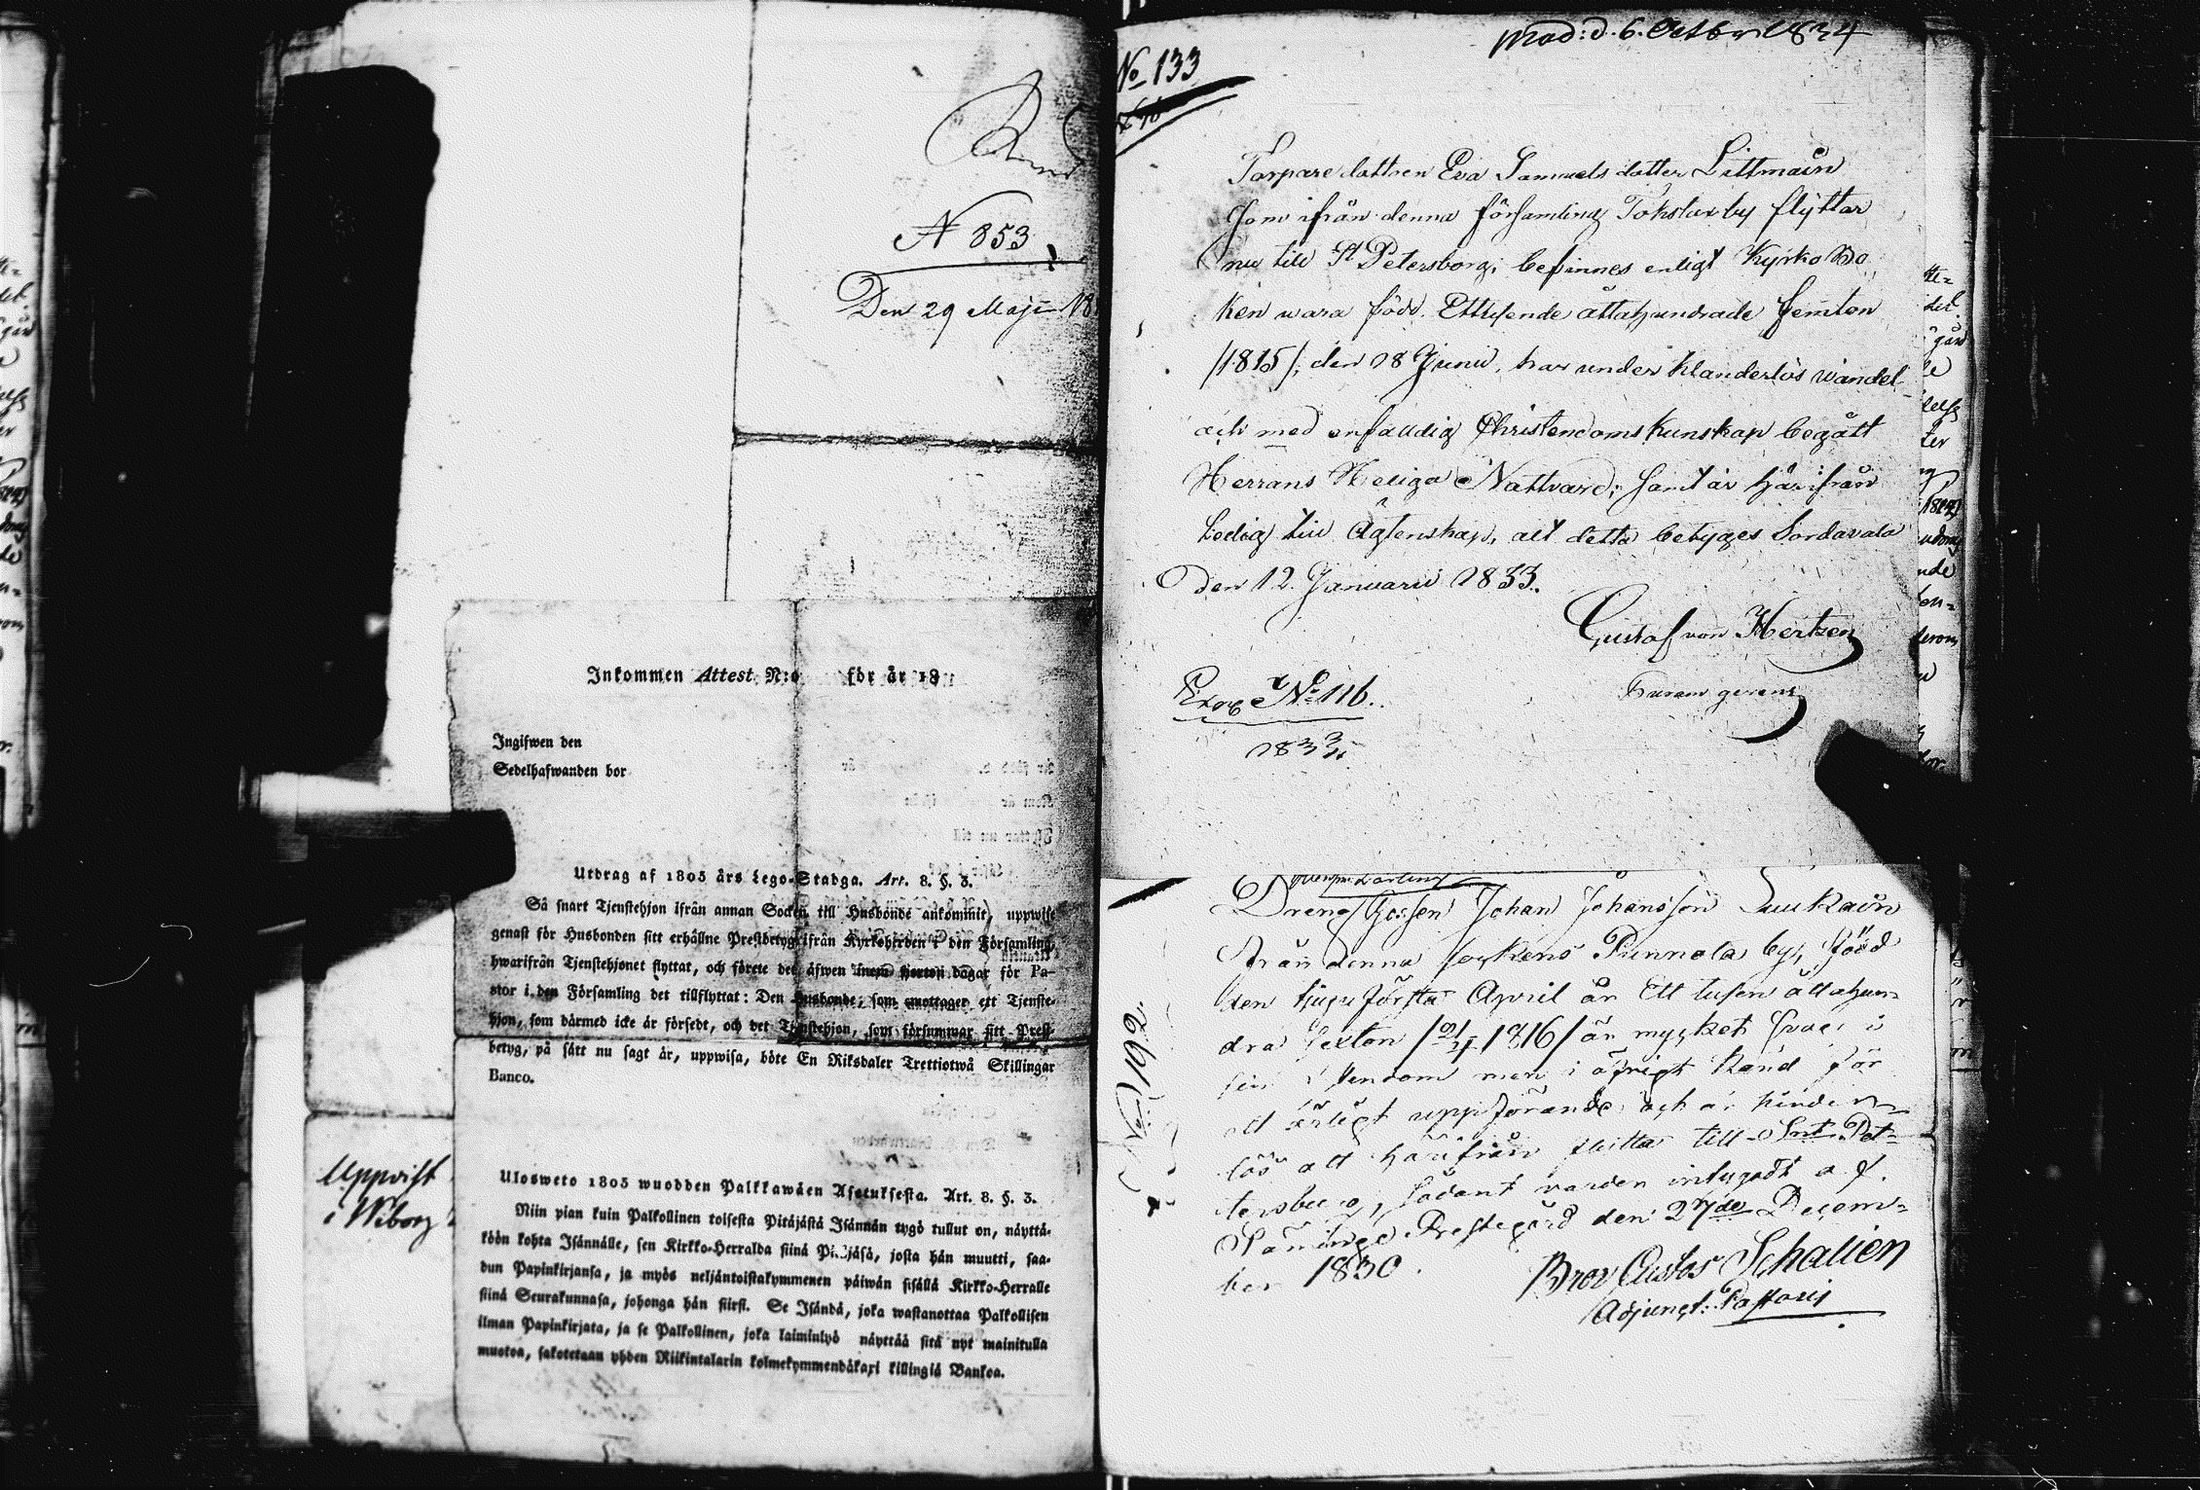 N 853
Den 29 Maji 18
Inkommen Attest N:o för år 18
Ingifwen den
Sedelhafwanden bor
Utdrag af 1805 års Lego-Stadga. Art. 8. §. 3.
Så snart Tjenstehjon ifrån annan Socken till Husbonde ankommit, uppwise
genast för Husbonden sitt erhållne Prestbetyg ifrån Kyrkoherden i den Församling,
hwarifrån Tjenstehjonet flyttat, och förete det äfwen inom fjorton dagar för Pa-
stor i den Församling det tillflyttat: Den Husbonde, som emottager ett Tjenste-
hjon, som därmed icke är försedt, och det Tjenstehjon, som försummar sitt Prest-
betyg, på sätt nu sagt är, uppwisa, böte En Riksdaler Trettiotwå Skillingar
Banco.
Uppvist
i Wiborg
Ulosweto 1805 wuodden Palkkawäen Asetuksesta. Art. 8. §. 3.
Niin pian kuin Palkollinen toisesta Pitäjästä Isännän tygö tullut on, näyttä-
köön kohta Isännälle, sen Kirkko-Herralda siinä Pitäjäsä, josta hän muutti, saa-
dun Papinkirjansa, ja myös neljäntoistakymmenen päiwän sisällä Kirkko-Herralle
siinä Seurakunnasa, johonga hän siirsi. Se Isändä, joka wastanottaa Palkollisen
ilman Papinkirjata, ja se Palkollinen, joka laiminlyö näyttää sitä nyt mainitulla
muotoa, sakotetaan yhden Riikintalarin kolmekymmendäkaxi killingiä Bankoa.
prod: d. 6. Octbr 1834
No 133
Torpare dottren Eva Samuels dotter Littmain
som ifrån denna församling Tokslax by flyttar
nu till St Petersborg; befinnes enligt Kyrko Bo
ken wara född Ettusende åttahundrade femton
/1815/, den 18 Junii, har under klanderlös wandel
och med enfaldig Christendoms kunskap begått
Herrans Heliga Nattvard; samt är härifrån
Ledig till Ägtenskap, alt detta betyges Sordavala
Den 12. Januarii 1833.
Gustaf von Hertzen
Curam gerens
No 116.
1833
Drenge Gossen Johan Johansson Suukain
från denna sockens Punnola by, född
den tjugu första April år Ett tusen åttahun-
dra sexton /21/4 1816/ är mycket svag i
sin men i öfrigt känd för
ett ärligt uppförande och är hinder-
lös att härifrån flitta till Snt Pet-
tersburg, sådant varder intygadt af.
Säminge Prestegård den 27de Decem-
ber 1830.
No 192
Bror Gustaf Schalien
Adjunct: Pastoris